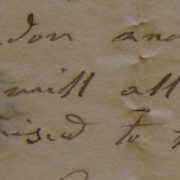 don and
will all
ised to